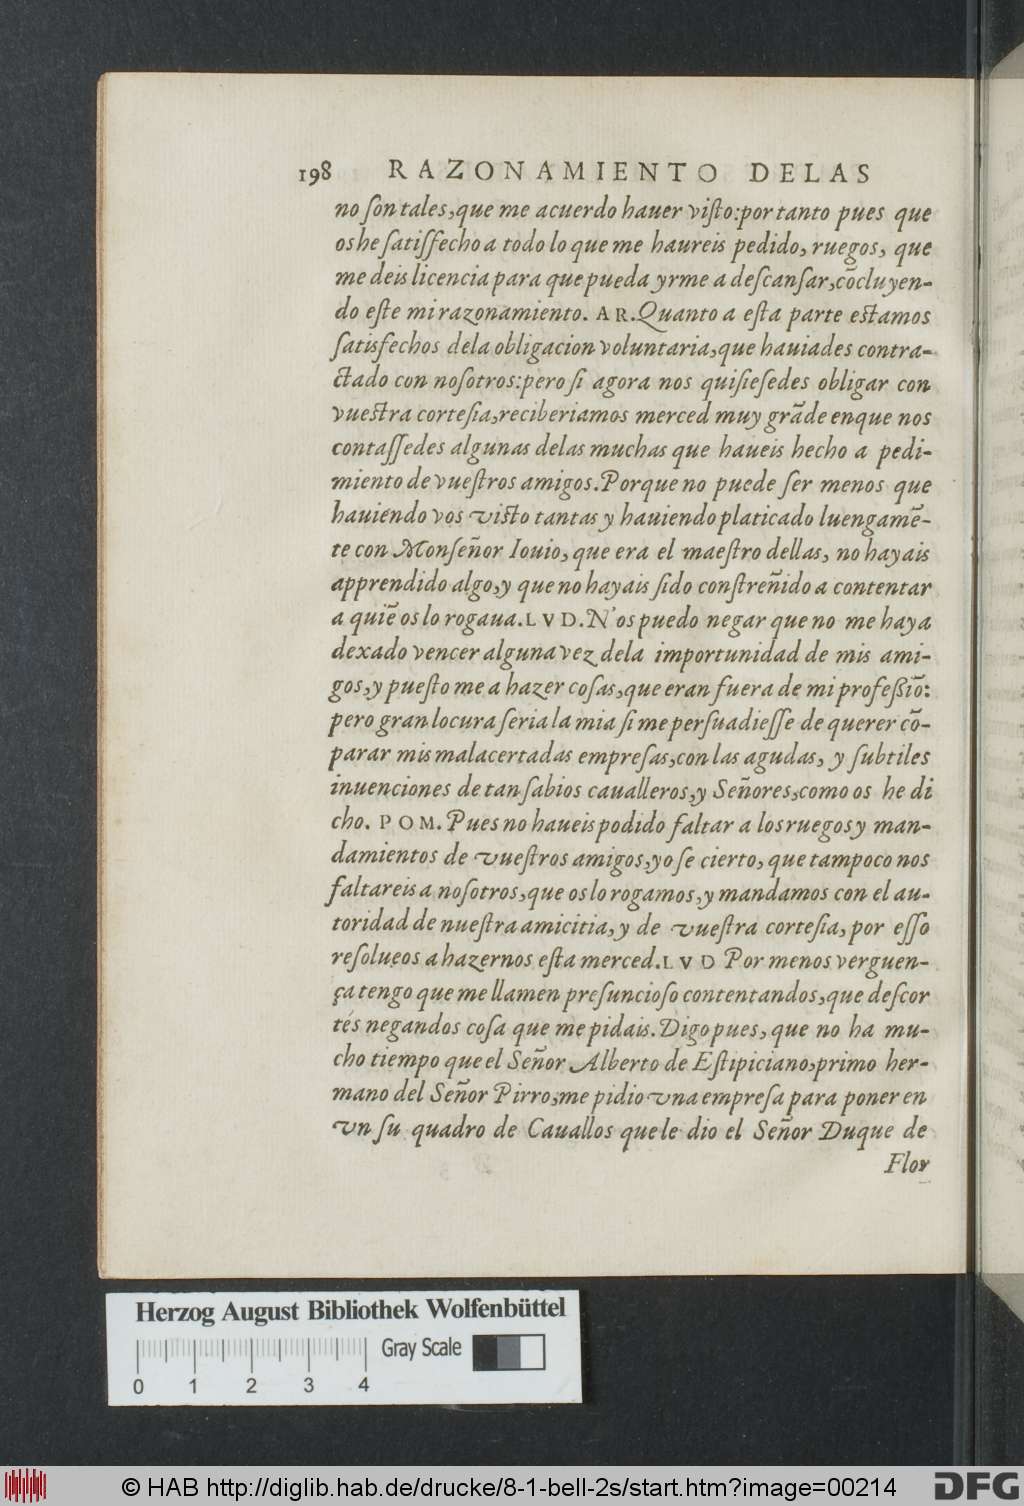 198 RAZONAMIENTO DELAS
no ſon tales, que me acuerdo hauer viſto: por tanto pues que
os he ſatiſfecho a todo lo que me haureis pedido, ruegos, que
me deis licencia para que pueda yrme a deſcanſar, cõcluyen-
do eſte mi razonamiento. AR. Quanto a eſta parte eſtamos
ſatisfechos dela obligacion voluntaria, que hauiades contra-
ctado con noſotros: pero ſi agora nos quiſieſedes obligar con
vueſtra corteſia, reciberiamos merced muy grãde enque nos
contaſſedes algunas delas muchas que haueis hecho a pedi-
miento de vueſtros amigos. Porque no puede ſer menos que
hauiendo vos viſto tantas y hauiendo platicado luengamẽ-
te con Monſeñor Iouio, que era el maeſtro dellas, no hayais
apprendido algo, y que no hayais ſido conſtreñido a contentar
a quiẽ os lo rogaua. LVD. N'os puedo negar que no me haya
dexado vencer alguna vez dela importunidad de mis ami-
gos, y pueſto me a hazer coſas, que eran fuera de mi profeßiõ:
pero gran locura ſeria la mia ſi me perſuadieſſe de querer cõ-
parar mis malacertadas empreſas, con las agudas, y ſubtiles
inuenciones de tan ſabios caualleros, y Señores, como os he di
cho. POM. Pues no haueis podido faltar a los ruegos y man-
damientos de vueſtros amigos, yo ſe cierto, que tampoco nos
faltareis a noſotros, que os lo rogamos, y mandamos con el au-
toridad de nueſtra amicitia, y de vueſtra corteſia, por eſſo
reſolueos a hazernos eſta merced. LVD Por menos verguen-
ça tengo que me llamen preſuncioſo contentandos, que deſcor
tés negandos coſa que me pidais. Digo pues, que no ha mu-
cho tiempo que el Señor Alberto de Eſtipiciano, primo her-
mano del Señor Pirro, me pidio vna empreſa para poner en
vn ſu quadro de Cauallos que le dio el Señor Duque de
Flor
Herzog August Bibliothek Wolfenbüttel
Gray Scale
0 1 2 3 4
© HAB http://diglib.hab.de/drucke/8-1-bell-2s/start.htm?image=00214
DFG